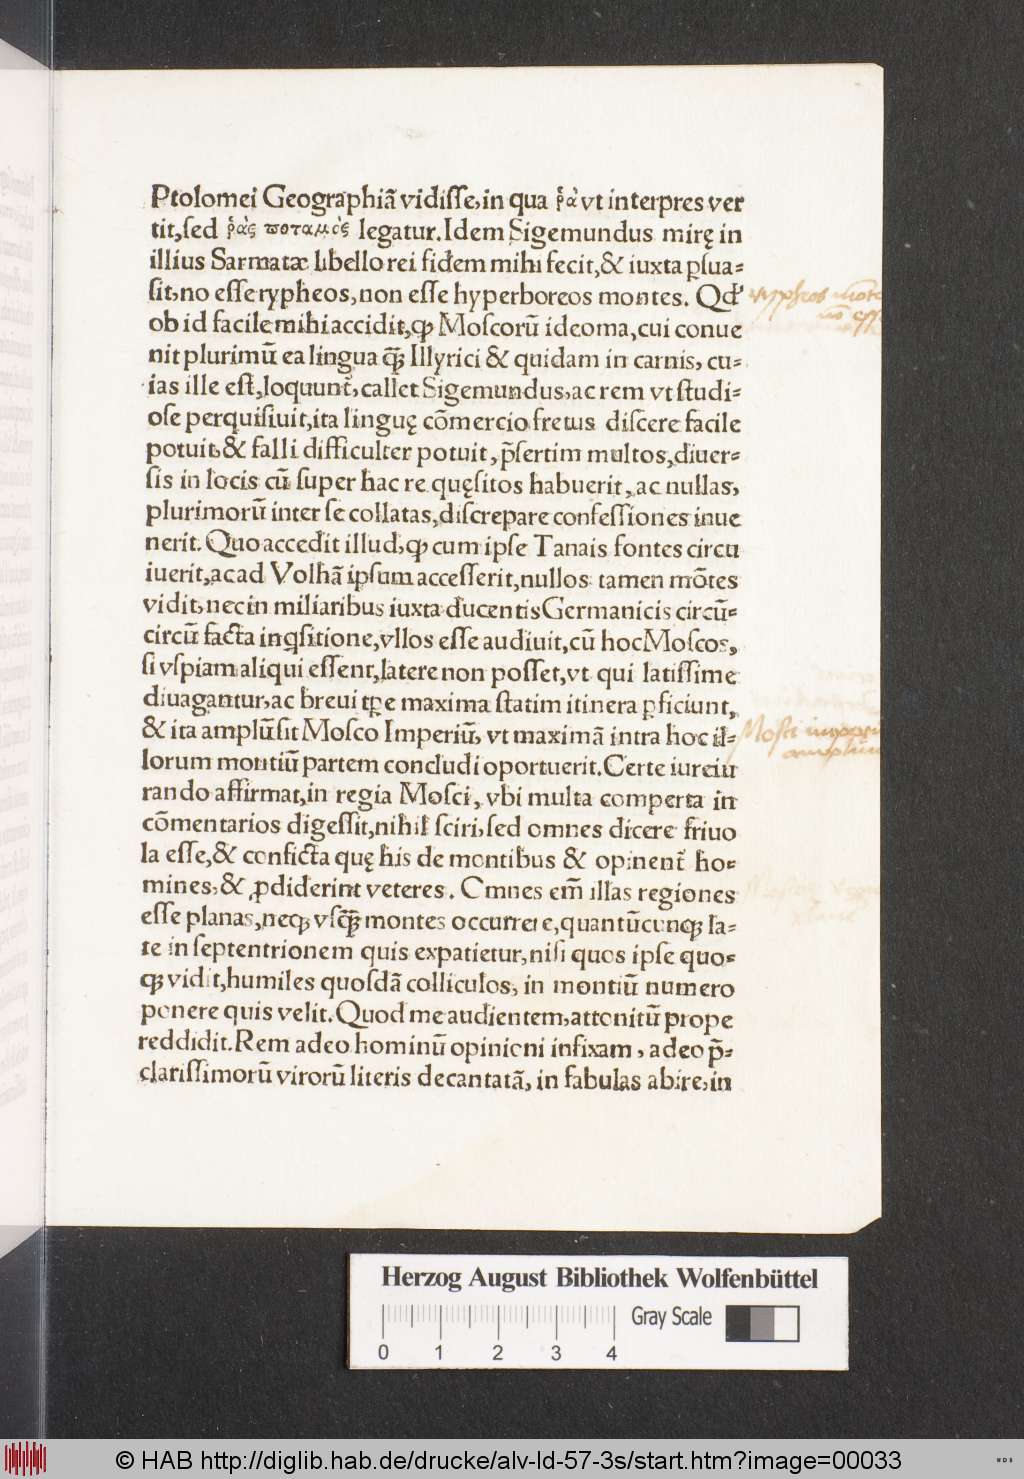 Ptolomei Geographiā vidiſſe, in qua ῥα̇ vt interpres ver
tit, ſed ῥα̇ς ποταμὸς legatur. Idem Sigemundus mirę in
illius Sarmatæ libello rei fidem mihi fecit, & iuxta ꝑſua⸗
ſit, no eſſe rypheos, non eſſe hyperboreos montes. Qđ
ob id facile mihi accidit, ꝙ Moſcorū ideoma, cui conue
nit plurimū ea lingua ꝗ̄ Illyrici & quidam in carnis, cu⸗
ias ille eſt, loquunt̄, callet Sigemundus, ac rem vt ſtudi⸗
oſe perquiſiuit, ita linguę cōmercio fretus diſcere facile
potuit, & falli difficulter potuit, p̄ſertim multos, diuer⸗
ſis in locis cū ſuper hac re quęſitos habuerit, ac nullas,
plurimorū inter ſe collatas, diſcrepare confeſſiones inue
nerit. Quo accedit illud, ꝙ cum ipſe Tanais fontes circu
iuerit, ac ad Volhā ipſum acceſſerit, nullos tamen mōtes
vidit, nec in miliaribus iuxta ducentis Germanicis circū⸗
circū facta inꝗſitione, vllos eſſe audiuit, cū hoc Moſcos,
ſi vſpiam aliqui eſſent, latere non poſſet, vt qui latiſſime
diuagantur, ac breui tꝑe maxima ſtatim itinera ꝑficiunt,
& ita amplū ſit Moſco Imperiū, vt maximā intra hoc il⸗
lorum montiū partem concludi oportuerit. Certe iureiu
rando affirmat, in regia Moſci, vbi multa comperta in
cōmentarios digeſſit, nihil ſciri, ſed omnes dicere friuo
la eſſe, & conficta quę his de montibus & opinent̄ ho⸗
mines, & ꝓdiderint veteres. Omnes em̄ illas regiones
eſſe planas, neqꝫ vſꝗ̄ montes occurrere, quantūcunqꝫ la⸗
te in ſeptentrionem quis expatietur, niſi quos ipſe quo⸗
qꝫ vidit, humiles quoſdā colliculos, in montiū numero
ponere quis velit. Quod me audientem, attonitū prope
reddidit. Rem adeo hominū opinioni infixam, adeo p̄⸗
clariſſimorū virorū literis decantatā, in fabulas abire, in
rypheos mōte
nō eſſ
Moſci imperiū
amplum
Herzog August Bibliothek Wolfenbüttel
Gray Scale
0 1 2 3 4
© HAB http://diglib.hab.de/drucke/alv-ld-57-3s/start.htm?image=00033